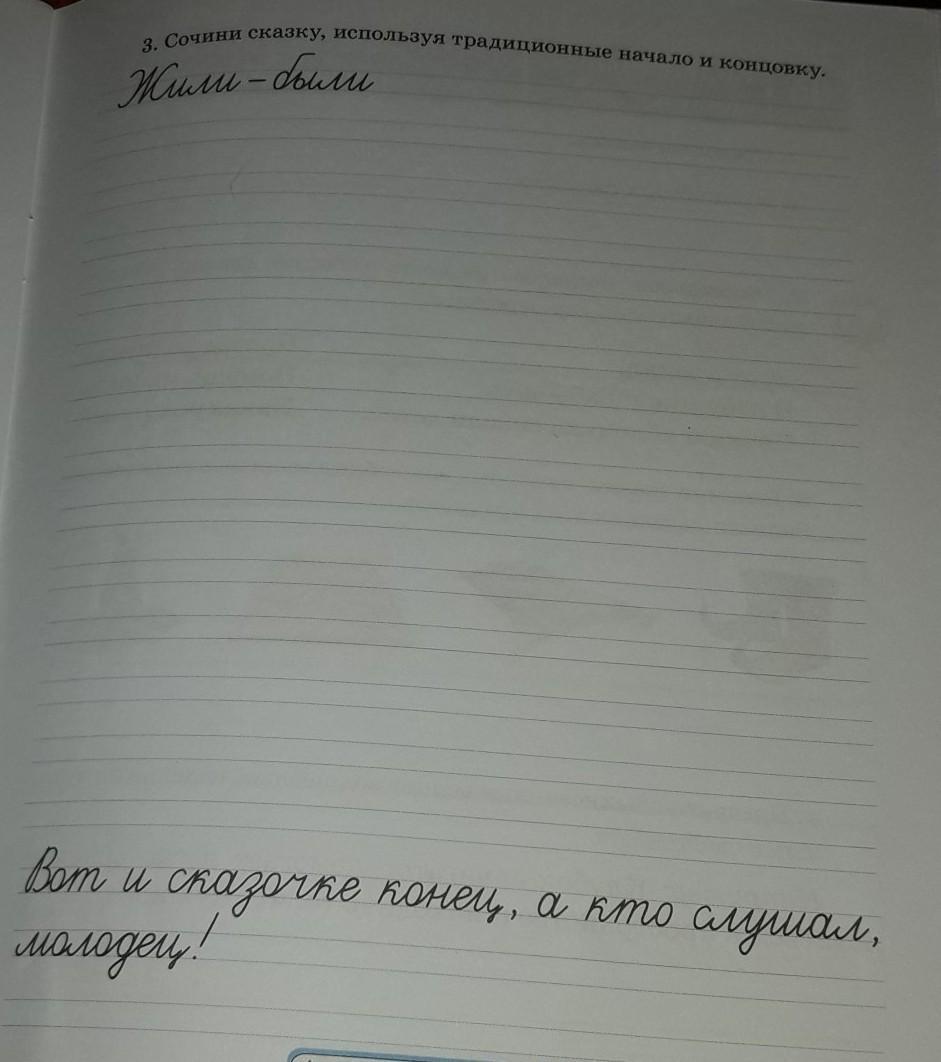 3. Сочини сказку, используя традиционные начало и концовку.
Жили-были
Вот и сказочке конец, а кто слушал,
молодец!